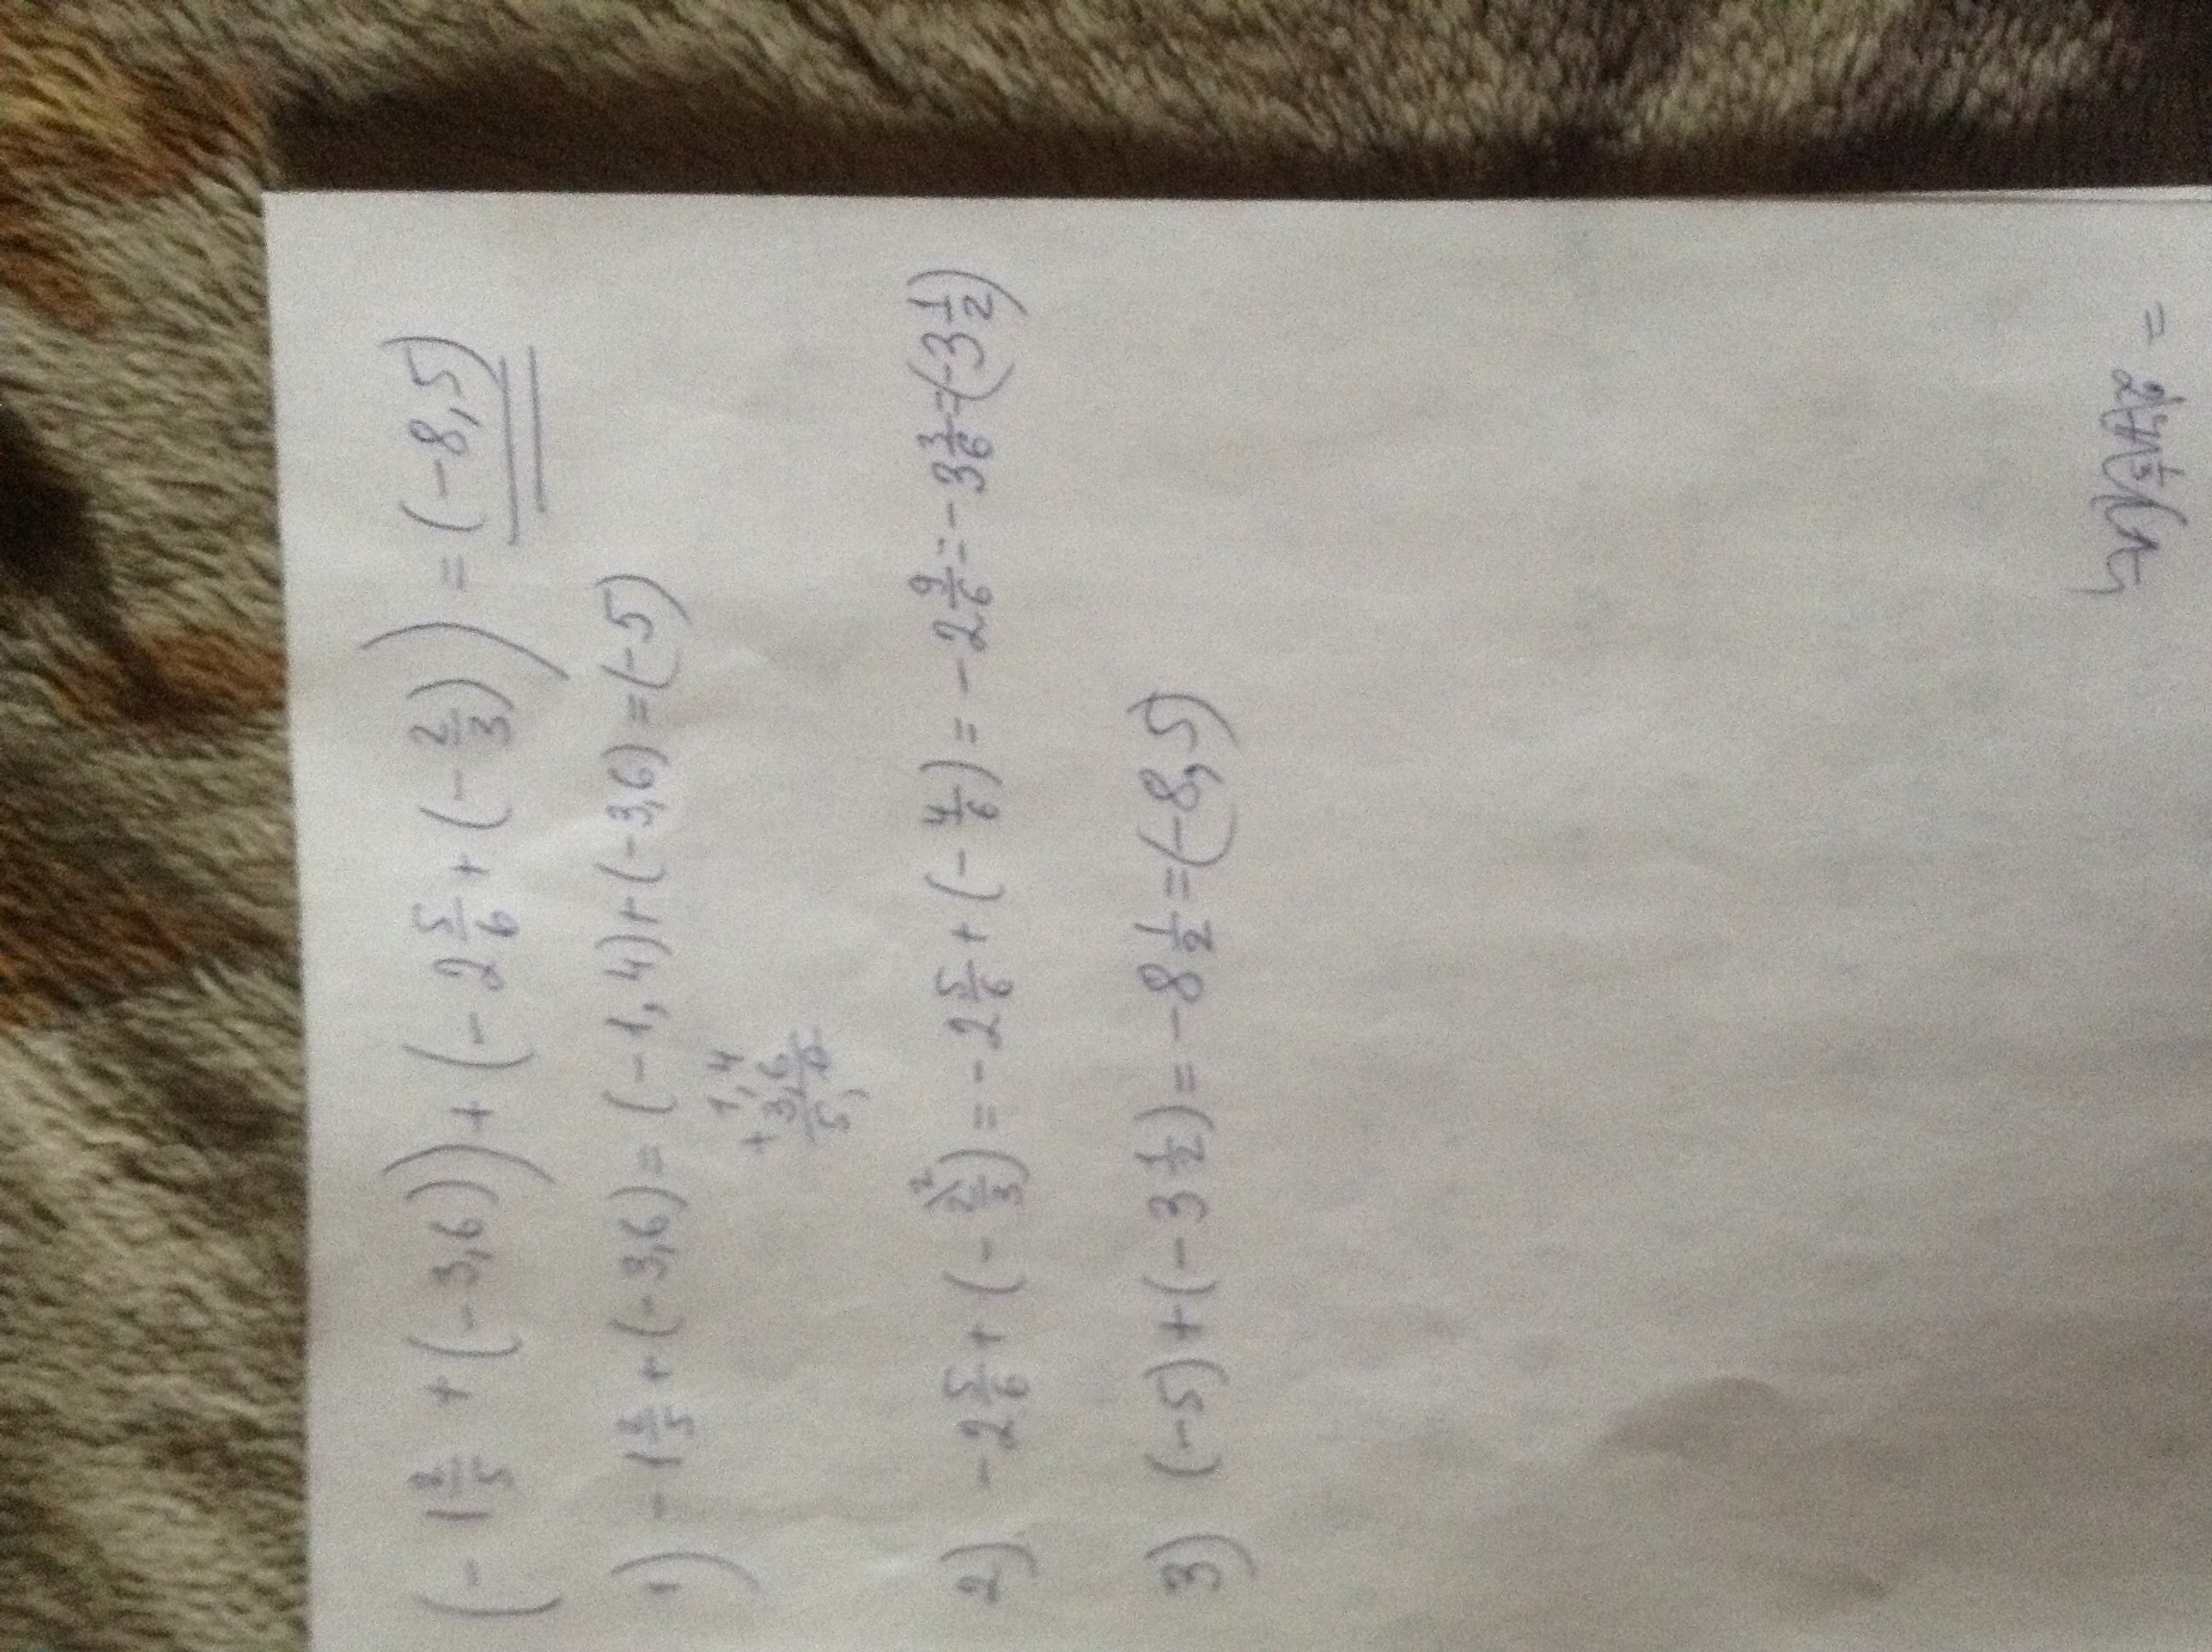 (- 1 2/5 + (-3,6)) + (- 2 5/6 + (- 2/3)) = (-8,5)
1) - 1 2/5 + (-3,6) = (-1,4) + (-3,6) = (-5)
1,4
+ 3,6
5,0
2) - 2 5/6 + (- 2/3 \2) = - 2 5/6 + (- 4/6) = - 2 9/6 = - 3 3/6 = (-3 1/2)
3) (-5) + (- 3 1/2) = - 8 1/2 = (-8,5)
=